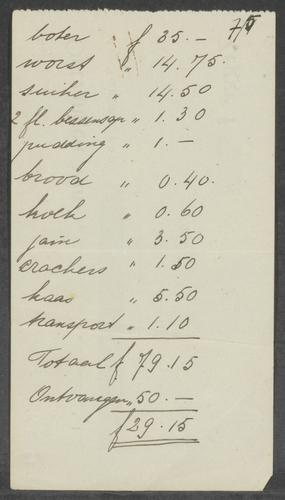 75
boter f 35.—
worst „ 14.75.
suiker „ 14.50
2 fl. bessensap „ 1.30
pudding „ 1.—
brood „ 0.40.
koek „ 0.60
jain „ 3.50
crackers „ 1.50
kaas „ 5.50
transport „ 1.10
Totaal f 79.15
Ontvangen „ 50.—
f 29.15